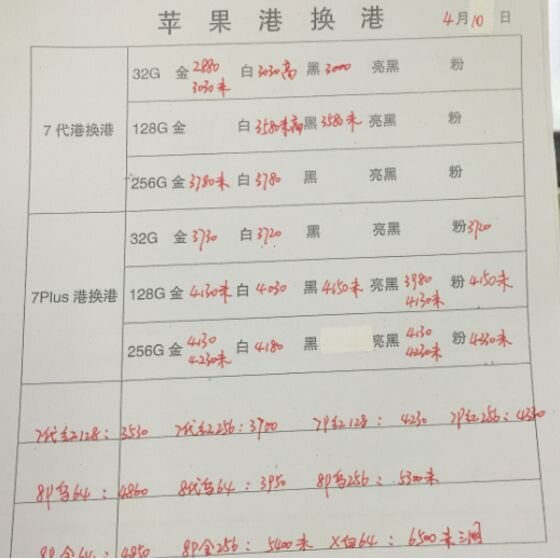 苹果港换港 4月10日
7代港换港
32G 金 2880 3030未 白 3030高 黑 3000 亮黑 粉
128G 金 白 3580未高 黑 3580未 亮黑 粉
256G 金 3780未 白 3780 黑 亮黑 粉
7Plus 港换港
32G 金 3730 白 3720 黑 亮黑 粉 3720
128G 金 4130未 白 4030 黑 4150未 亮黑 3980 4130未 粉 4150未
256G 金 4130 4230未 白 4180 黑 亮黑 4130 4230未 粉 4230未
7代红128:3530 7代红256:3700 7P红128:4230 7P红256:4330
8P鸟64:4860 8代鸟64:3950 8P鸟256:5300未
8P金64:4850 8P金256:5400未 X白64:6500未三网